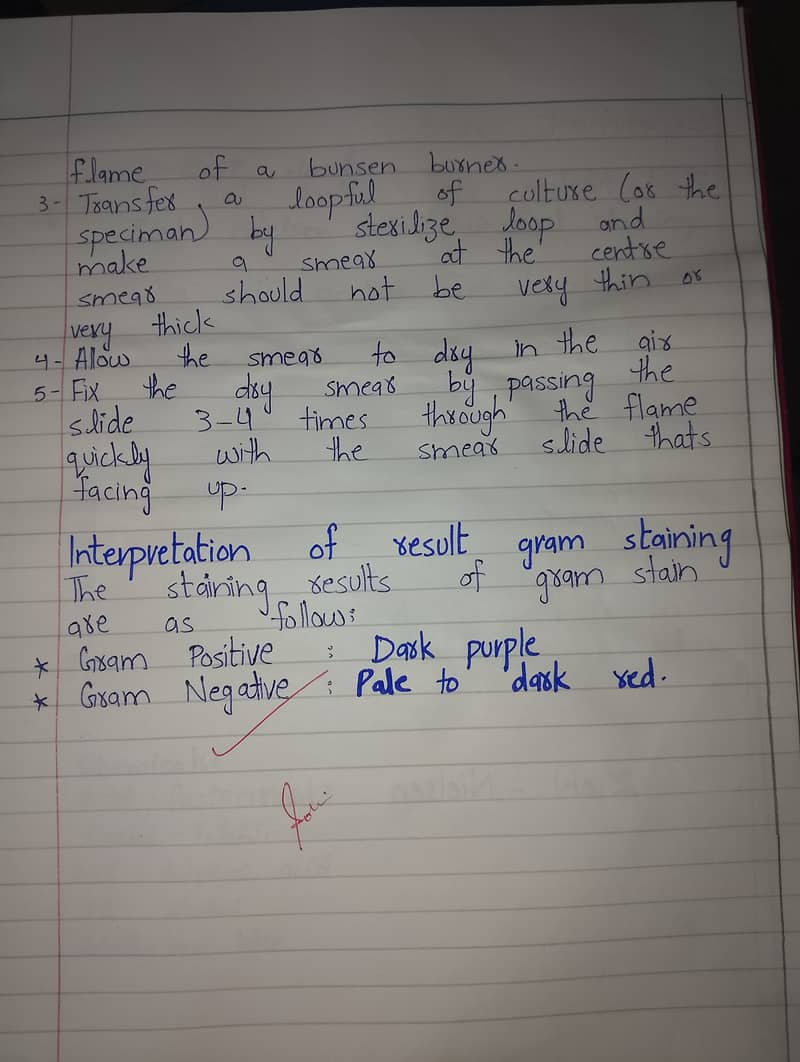 flame of a bunsen burner.
3- Transfer, a loopful of culture (or the
speciman) by sterilize loop and
make a smear at the centre
smear should not be very thin or
very thick
4- Alow the smear to dry in the air
5- Fix the dry smear by passing the
slide 3-4 times through the flame
quickly with the smear slide thats
facing up.
Interpretation of result gram staining
The staining results of gram stain
are as follow:
* Gram Positive : Dark purple
* Gram Negative : Pale to dark red.